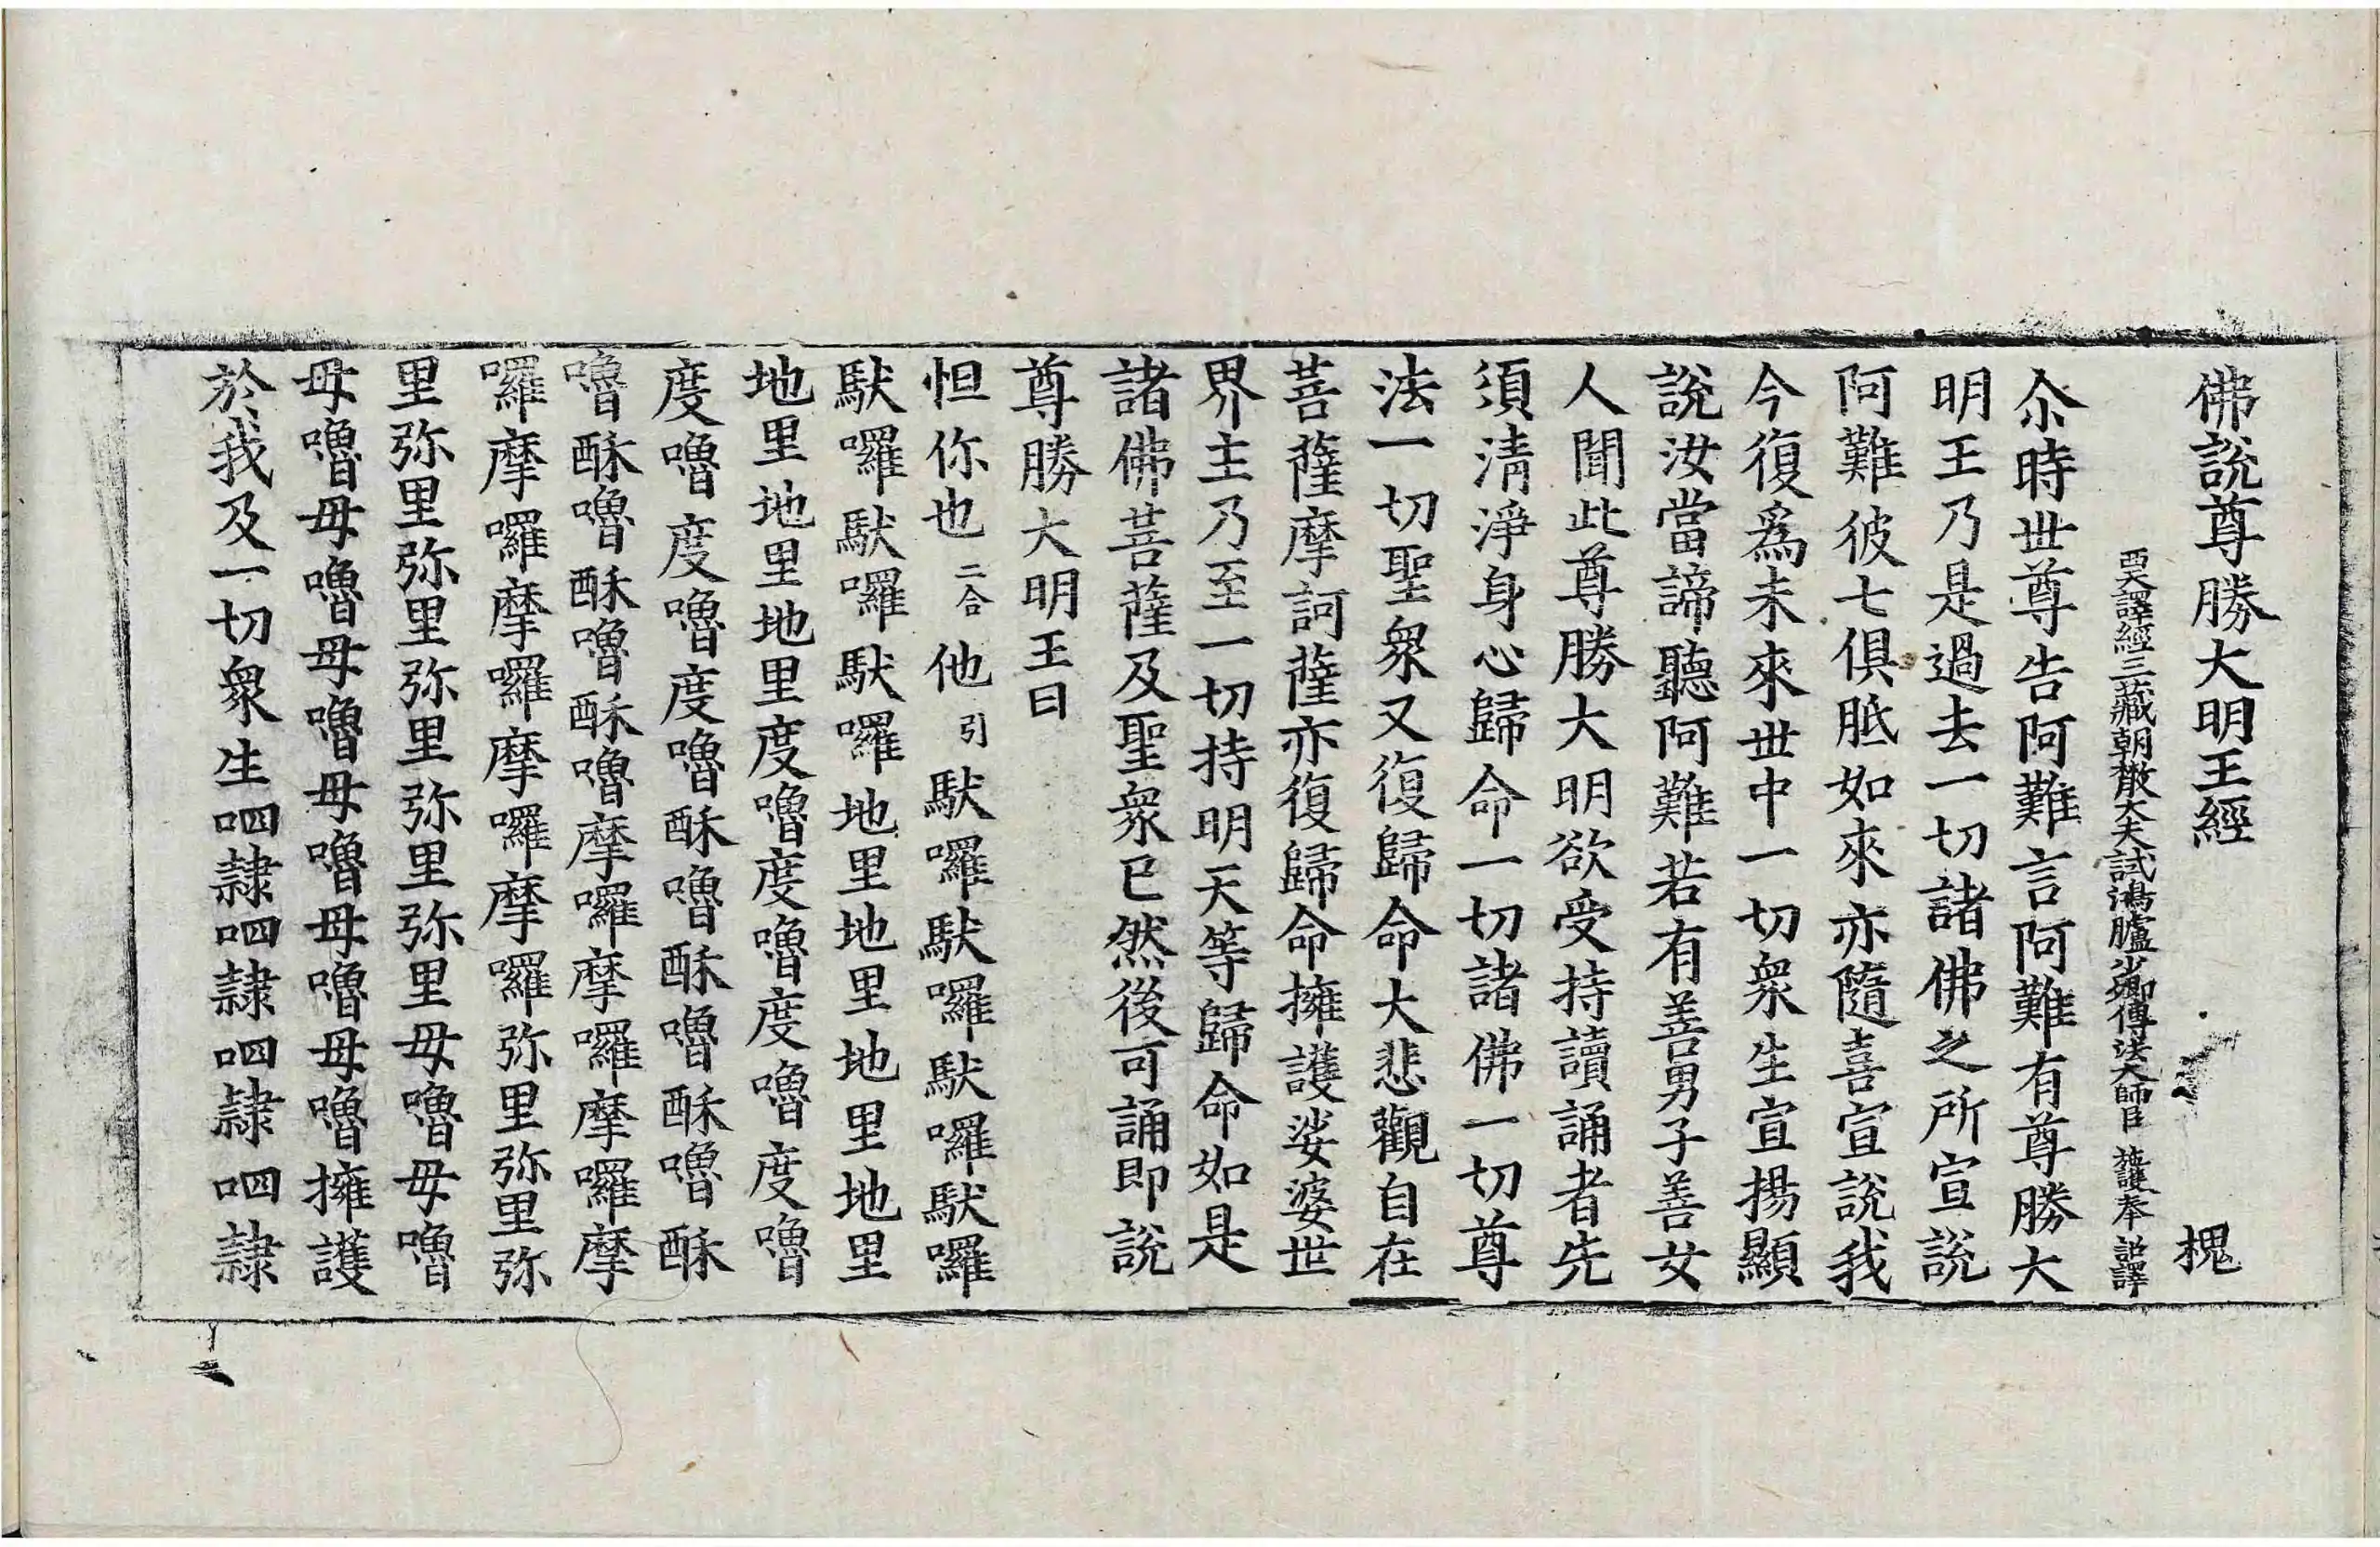 佛說尊勝大明王經 槐
西天譯經三藏朝散大夫試鴻臚少卿傳法大師臣 施護奉 詔譯
尒時世尊告阿難言阿難有尊勝大
明王乃是過去一切諸佛之所宣說
阿難彼七俱胝如來亦隨喜宣說我
今復爲未來世中一切衆生宣揚顯
說汝當諦聽阿難若有善男子善女
人聞此尊勝大明欲受持讀誦者先
須清淨身心歸命一切諸佛一切尊
法一切聖衆又復歸命大悲觀自在
菩薩摩訶薩亦復歸命擁護娑婆世
界主乃至一切持明天等歸命如是
諸佛菩薩及聖衆已然後可誦即說
尊勝大明王曰
怛你也二合他引馱囉馱囉馱囉馱囉
馱囉馱囉馱囉地里地里地里地里
地里地里地里度嚕度嚕度嚕度嚕
度嚕度嚕度嚕酥嚕酥嚕酥嚕酥
嚕酥嚕酥嚕酥嚕摩囉摩囉摩囉摩
囉摩囉摩囉摩囉摩囉弥里弥里弥
里弥里弥里弥里弥里弥里毋嚕毋嚕
毋嚕毋嚕毋嚕毋嚕毋嚕毋嚕擁護
於我及一切衆生呬隷呬隷呬隷呬隷